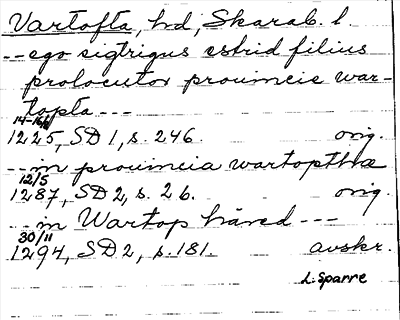 Vartofta, hd, Skarab. l.
-- ego sigtrigus estrid filius
prolocutor prouincie war-
topta ---
14-16/6
1225, SD 1, s. 246. orig.
-- in prouincia wartopthæ
12/5
1287, SD 2, s. 26. orig.
-- in Wartop häred ---
30/11
1294, SD 2, s. 181. avskr.
L. Sparre